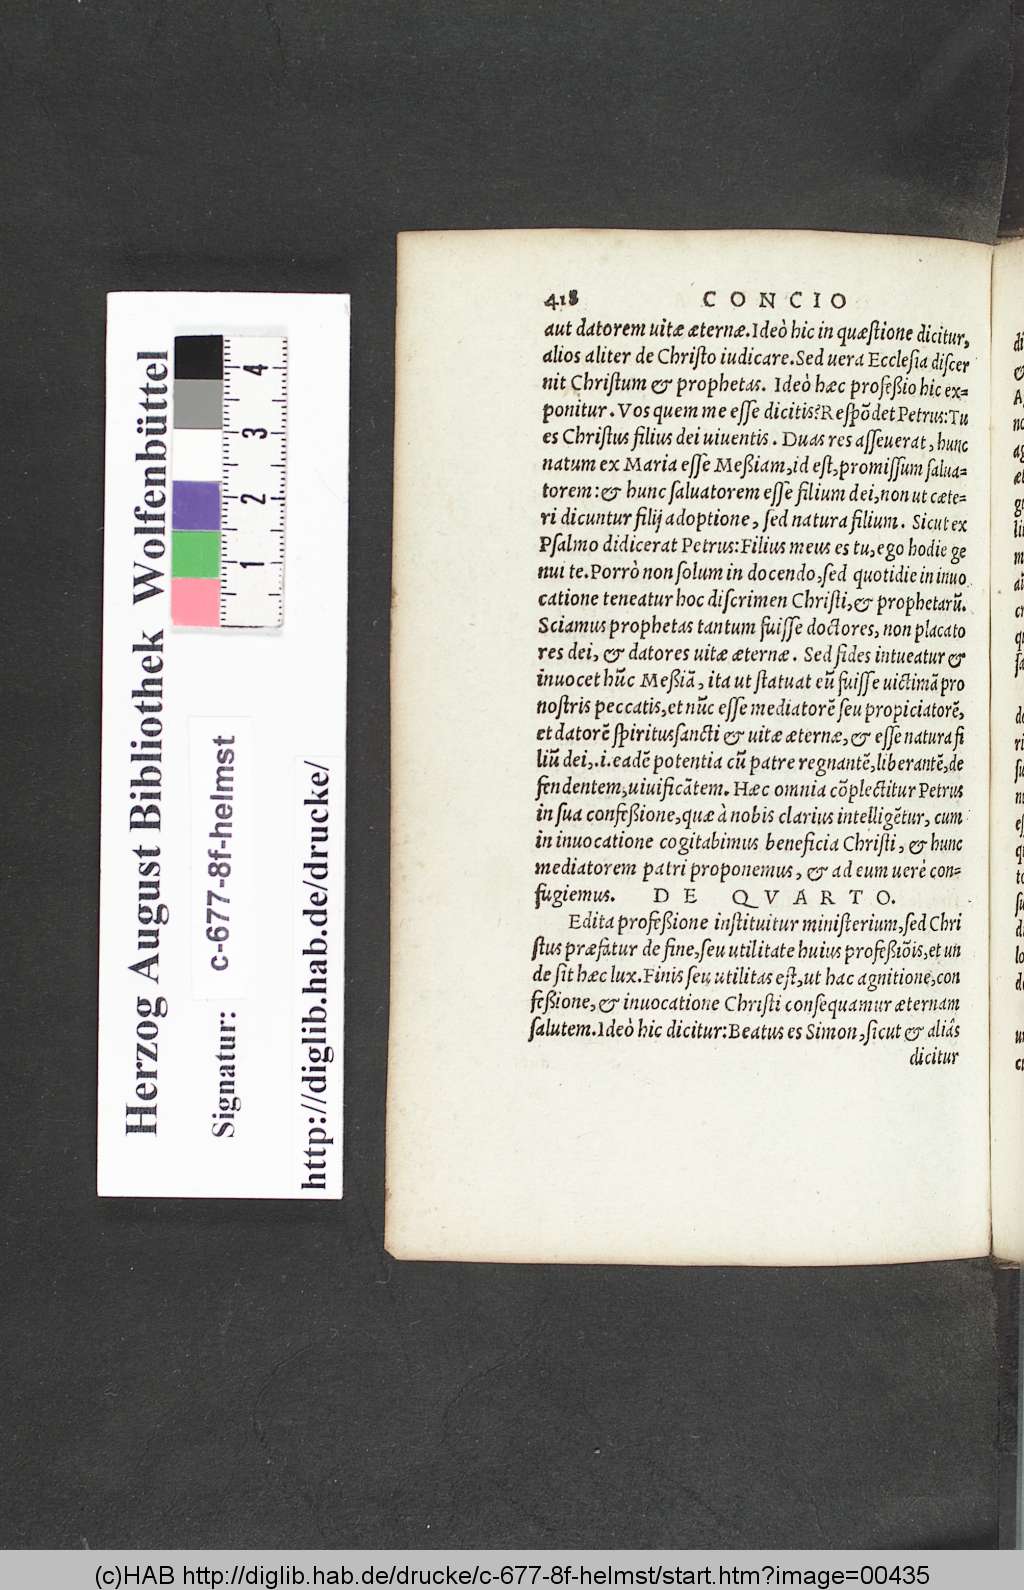 418 CONCIO
aut datorem uitæ æternæ. Ideò hic in quæſtione dicitur,
alios aliter de Chriſto iudicare. Sed uera Eccleſia diſcer
nit Chriſtum & prophetas. Ideò hæc profeßio hic ex=
ponitur. Vos quem me eſſe dicitis? Reſpōdet Petrus: Tu
es Chriſtus filius dei uiuentis. Duas res aſſeuerat, hunc
natum ex Maria eſſe Meßiam, id eſt, promiſſum ſalua=
torem: & hunc ſaluatorem eſſe filium dei, non ut cæte=
ri dicuntur filij adoptione, ſed natura filium. Sicut ex
Pſalmo didicerat Petrus: Filius meus es tu, ego hodie ge
nui te. Porrò non ſolum in docendo, ſed quotidie in inuo
catione teneatur hoc diſcrimen Chriſti, & prophetarū.
Sciamus prophetas tantum fuiſſe doctores, non placato
res dei, & datores uitæ æternæ. Sed fides intueatur &
inuocet hūc Meßiā, ita ut ſtatuat eū fuiſſe uictimā pro
noſtris peccatis, et nūc eſſe mediatorē ſeu propiciatorē,
et datorē ſpiritusſancti & uitæ æternæ, & eſſe natura fi
liū dei, .i. eadē potentia cū patre regnantē, liberantē, de
fendentem, uiuificātem. Hæc omnia cōplectitur Petrus
in ſua confeßione, quæ à nobis clarius intelligētur, cum
in inuocatione cogitabimus beneficia Chriſti, & hunc
mediatorem patri proponemus, & ad eum uerè con=
fugiemus. DE QVARTO.
Edita profeßione inſtituitur miniſterium, ſed Chri
ſtus præfatur de fine, ſeu utilitate huius profeßiōis, et un
de ſit hæc lux. Finis ſeu utilitas eſt, ut hac agnitione, con
feßione, & inuocatione Chriſti conſequamur æternam
ſalutem. Ideò hic dicitur: Beatus es Simon, ſicut & aliâs
dicitur
Herzog August Bibliothek Wolfenbüttel
Signatur: c-677-8f-helmst
http://diglib.hab.de/drucke/
1 2 3 4
(c)HAB http://diglib.hab.de/drucke/c-677-8f-helmst/start.htm?image=00435